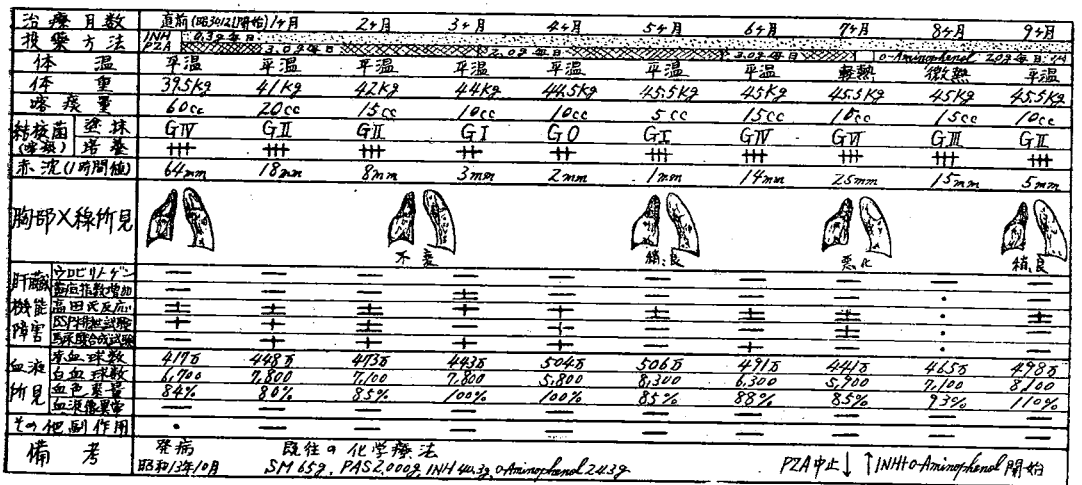 治療月数 直前(昭34.12.1開始) 1ヶ月 2ヶ月 3ヶ月 4ヶ月 5ヶ月 6ヶ月 7ヶ月 8ヶ月 9ヶ月
投薬方法 INH 0.3g 毎日
PZA 3.0g 毎日 2.0g 毎日 3.0g 毎日 o-Aminophenol 2.0g 毎日
体温 平温 平温 平温 平温 平温 平温 平温 軽熱 微熱 平温
体重 39.5Kg 41Kg 42Kg 44Kg 44.5Kg 45.5Kg 45Kg 45.5Kg 45Kg 45.5Kg
喀痰量 60cc 20cc 15cc 10cc 10cc 5cc 15cc 10cc 15cc 10cc
結核菌(喀痰) 塗抹 GⅣ GⅡ GⅡ GⅠ G0 GⅠ GⅣ GⅥ GⅢ GⅡ
培養 ⧻ ⧻ ⧻ ⧺ ⧺ ⧻ ⧻ ⧻ ⧻ ⧻
赤沈(1時間値) 64mm 18mm 8mm 3mm 2mm 1mm 14mm 25mm 15mm 5mm
胸部X線所見
不変 稍々良 悪化 稍々良
肝臓機能障害
ウロビリノゲン − − − − − − − − − −
黄疸指数増加 − − − ± − − − − ・ −
高田氏反応 ± ± ± + + + + ± ・ +
BSP排泄試験
馬尿酸合成試験
血液所見
赤血球数 417万 448万 473万 443万 504万 506万 491万 441万 465万 498万
白血球数 6,700 7,800 7,100 7,800 5,800 8,300 6,300 5,900 7,100 8,100
血色素量 84% 80% 85% 100% 100% 85% 88% 85% 93% 110%
血液像異常 − − − − − − − − − −
その他副作用 ・ − − − − − − − − −
備考 発病 既往の化学療法
昭和13年10月 SM 65g, PAS 2,000g, INH 44.3g, o-Aminophenol 24.3g PZA中止↓ ↑INH+o-Aminophenol 開始